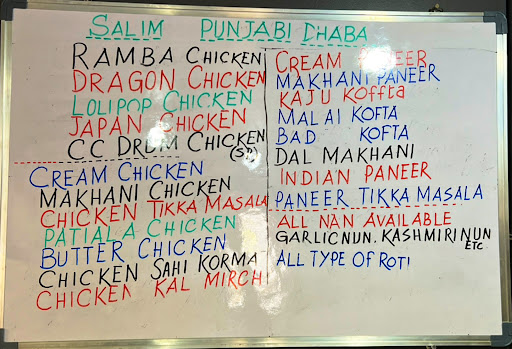 SALIM PUNJABI DHABA
RAMBA CHICKEN
DRAGON CHICKEN
LOLIPOP CHICKEN
JAPAN CHICKEN
CC DRUM CHICKEN
(SP)
CREAM CHICKEN
MAKHANI CHICKEN
CHICKEN TIKKA MASALA
PATIALA CHICKEN
BUTTER CHICKEN
CHICKEN SAHI KORMA
CHICKEN KAL MIRCH
CREAM PANEER
MAKHANI PANEER
KAJU KOFFTA
MALAI KOFTA
BAD KOFTA
DAL MAKHANI
INDIAN PANEER
PANEER TIKKA MASALA
ALL NAN AVAILABLE
GARLIC NUN. KASHMIRI NUN
ETC
ALL TYPE OF ROTI